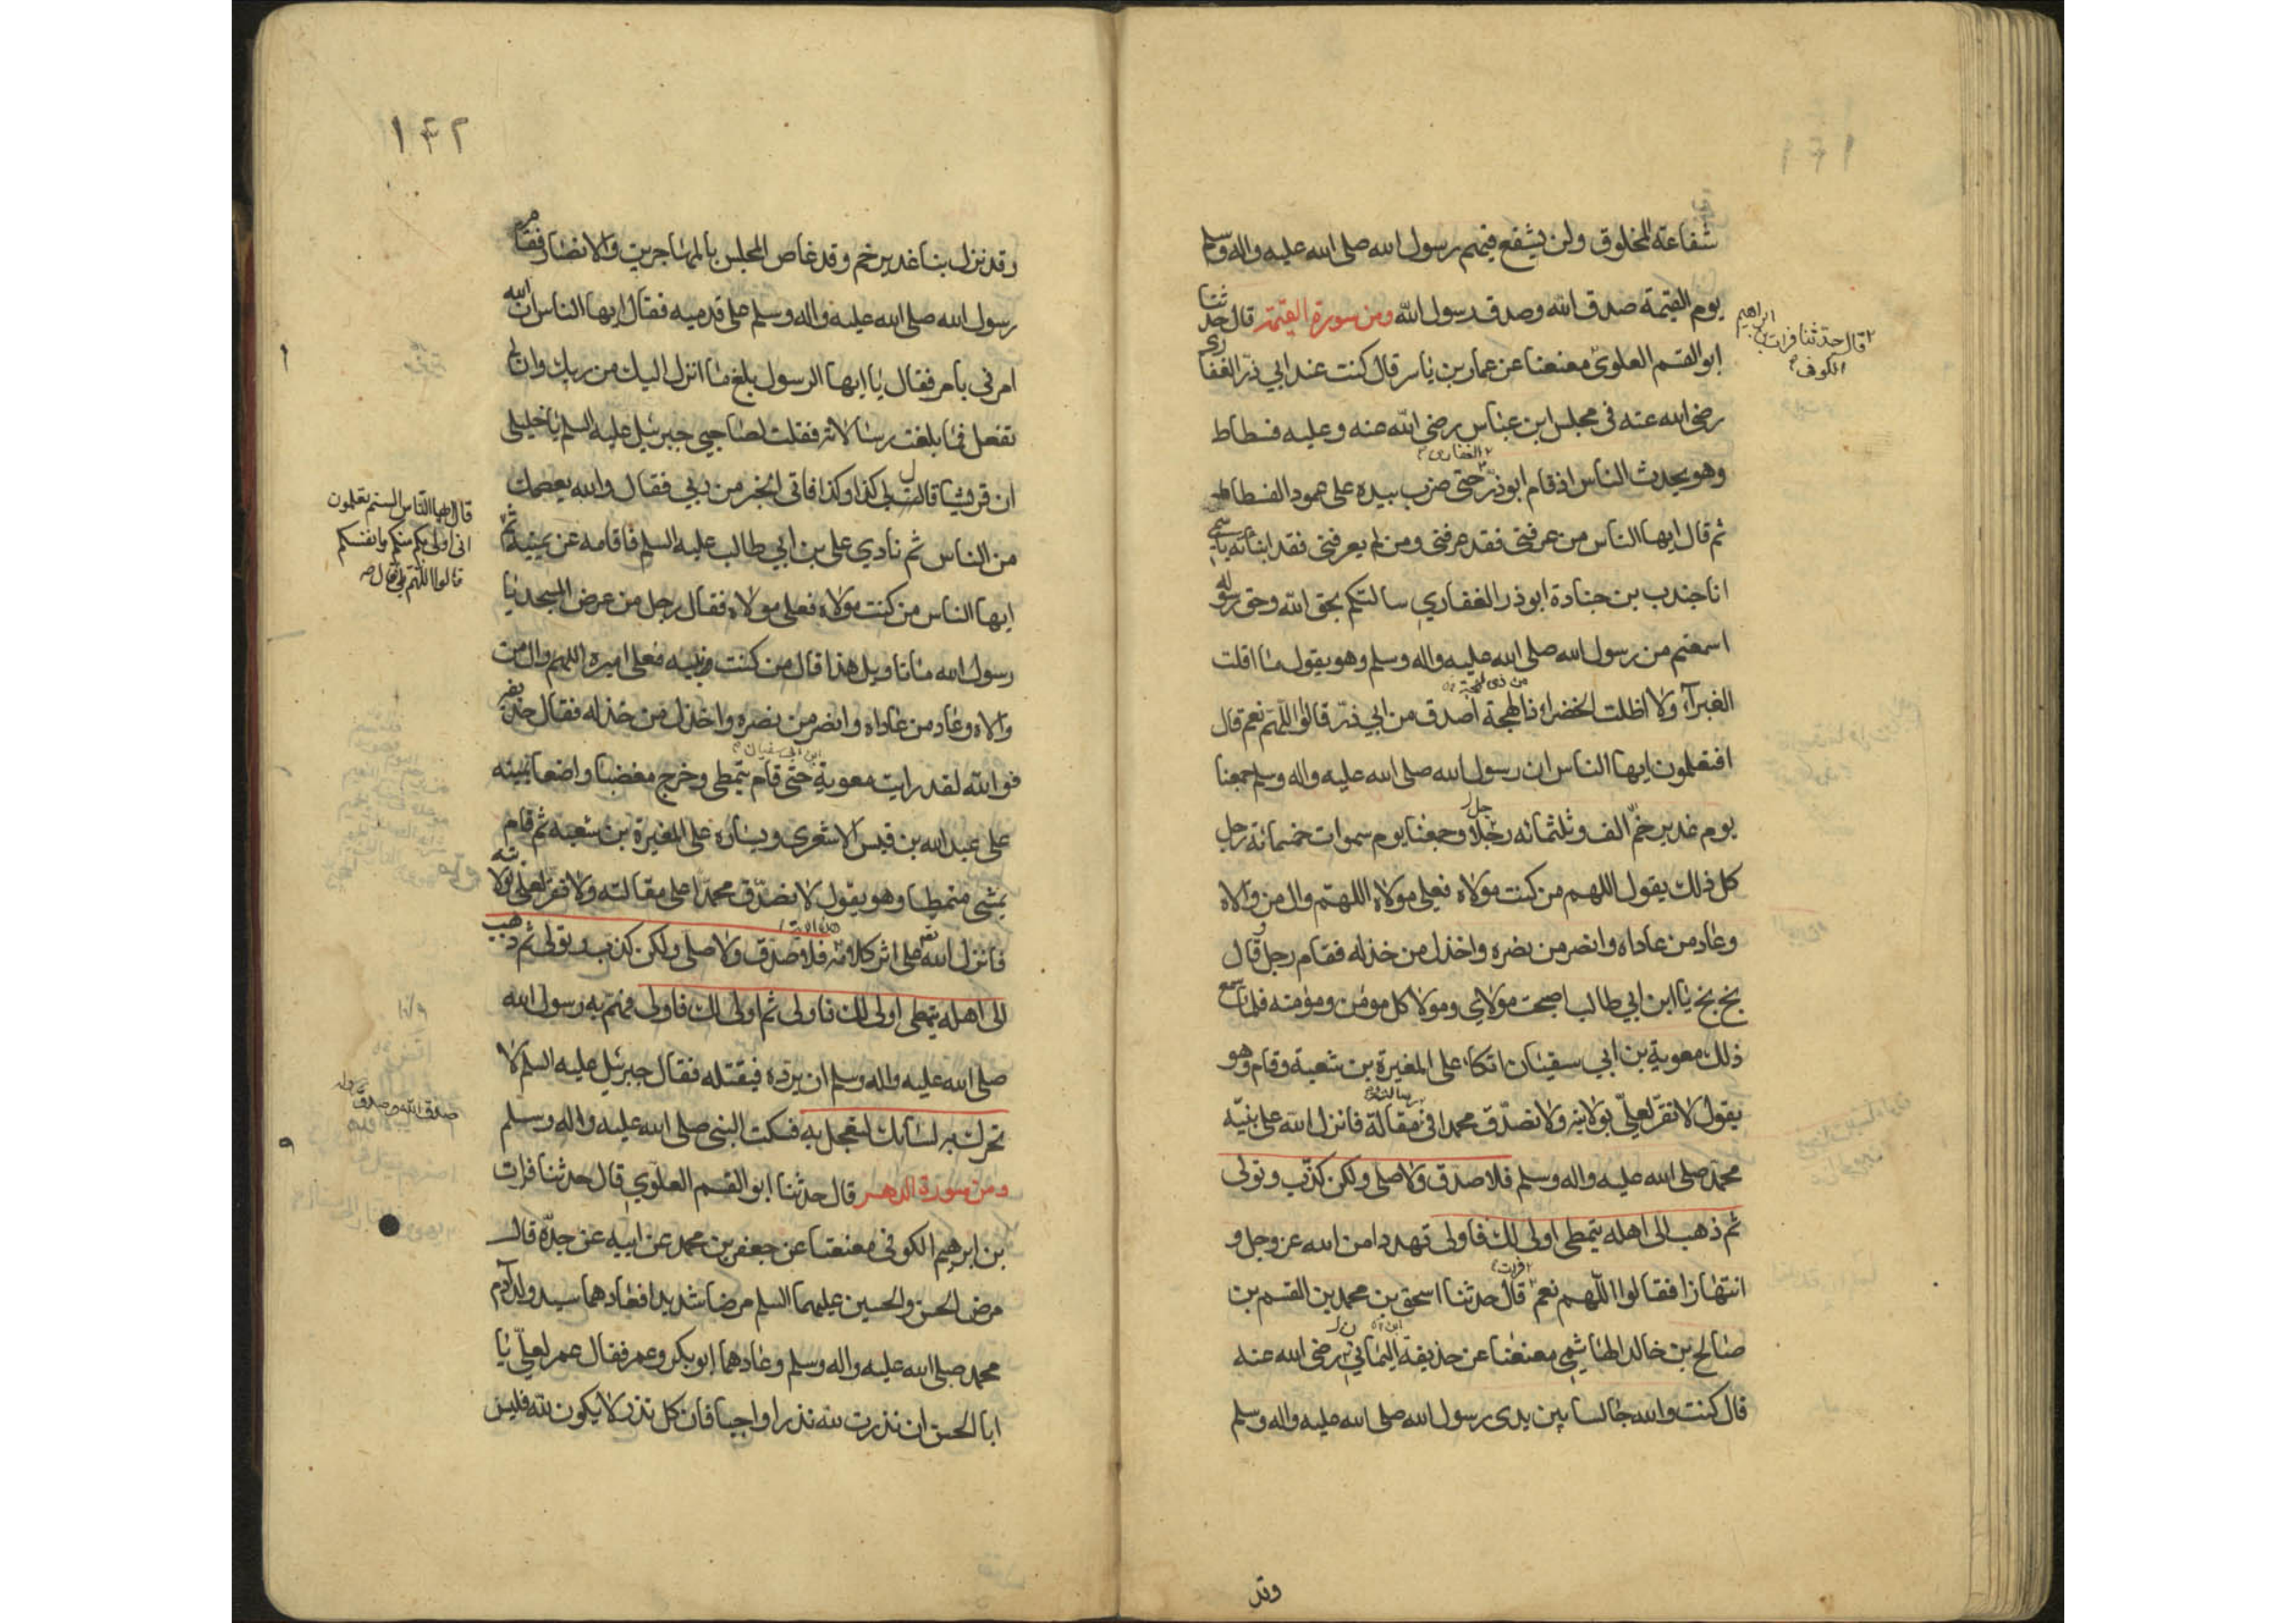 ١٤١
شفاعة المخلوق ولن يشفع فيهم رسول الله صلى الله عليه واله وسلم
يوم القيمة صدق الله وصدق رسول الله ومن سورة القيمة قال حدثنا
ابو القسم العلوي معنعنا عن عمار بن ياسر قال كنت عند ابي ذر الغفاري
رضي الله عنه في مجلس ابن عباس رضي الله عنه وعليه فسطاط
وهو يحدث الناس اذ قام ابو ذر حتى ضرب بيده على عمود الفسطاط
ثم قال ايها الناس من عرفني فقد عرفني ومن لم يعرفني فقد انباته باسمي
انا جندب بن جنادة ابو ذر الغفاري سالتكم بحق الله وحق رسوله
اسمعتم من رسول الله صلى الله عليه واله وسلم وهو يقول ما اقلت
الغبراء ولا اظلت الخضراء ذا لهجة اصدق من ابي ذر قالوا اللهم نعم قال
افتعلمون ايها الناس ان رسول الله صلى الله عليه واله وسلم جمعنا
يوم غدير خم الف وثلثمائه رجلا وجمعنا يوم سموات خمسمائة رجل
كل ذلك يقول اللهم من كنت مولاه فعلي مولاه اللهم وال من والاه
وعاد من عاداه وانصر من نصره واخذل من خذله فقام رجل وقال
بخ بخ يا ابن ابي طالب اصبحت مولاي ومولا كل مومن ومؤمنه فلما سمع
ذلك معوية بن ابي سفيان اتكاء على المغيرة بن شعبة وقام وهو
يقول لا نقر لعلي بولايته ولا نصدق محمدا في مقالة فانزل الله على نبيه
محمد صلى الله عليه واله وسلم فلا صدق ولا صلى ولكن كذب وتولى
ثم ذهب الى اهله يتمطى اولى لك فاولى تهددا من الله عز وجل و
انتهازا فقالوا اللهم نعم قال حدثنا اسحق بن محمد بن القسم بن
صالح بن خالد الهاشمي معنعنا عن حذيفة اليماني رضي الله عنه
قال كنت والله جالسا بين يدى رسول الله صلى الله عليه واله وسلم
وقد
قال حدثنا فرات بن ابراهيم
الكوفي
١٤٢
وقد نزل بنا غدير خم وقد غاص المجلس بالمهاجرين والانصار فقام
رسول الله صلى الله عليه واله وسلم على قدميه فقال ايها الناس ان الله
امرني بامر فقال يا ايها الرسول بلغ ما انزل اليك من ربك وان لم
تفعل فما بلغت رسالاته فقلت لصاحبي جبرئيل عليه السلم يا خليلي
ان قريشا قالت لي كذا وكذا فاتى الخبر من ربي فقال والله يعصمك
من الناس ثم نادي علي بن ابي طالب عليه السلم فاقامه عن يمينه ثم
ايها الناس من كنت مولاه فعلي مولاه فقال رجل من عرض المسجد يا
رسول الله ما تاويل هذا قال من كنت نبيه فعلي اميره اللهم وال من
والاه وعاد من عاداه وانصر من نصره واخذل من خذله فقال حذيفة
فوالله لقد رايت معوية حتى قام يتمطى وخرج مغضبا واضعا يمينه
على عبد الله بن قيس الاشعري ويساره على المغيرة بن شعبة ثم قام
يمشي متمطيا وهو يقول لا نصدق محمدا على مقالته ولا نقر لعلي بولايته
فانزل الله على اثر كلامه فلا صدق ولا صلى ولكن كذب وتولى ثم ذهب
الى اهله يتمطى اولى لك فاولى ثم اولى لك فاولى فهم به رسول الله
صلى الله عليه واله وسلم ان يرده فيقتله فقال جبرئيل عليه السلم لا
تحرك به لسانك لتعجل به فسكت النبي صلى الله عليه واله وسلم
ومن سورة الدهر قال حدثنا ابو القسم العلوي قال حدثنا فرات
بن ابرهيم الكوفي معنعنا عن جعفر بن محمد عن ابيه عن جده قال
مرض الحسن والحسين عليهما السلم مرضا شديدا فعادهما سيد ولد آدم
محمد صلى الله عليه واله وسلم وعادهما ابو بكر وعمر فقال عمر لعلي يا
ابا الحسن ان نذرت لله نذرا واجبا فان كل نذر لا يكون لله فليس
قال ايها الناس الستم تعلمون
اني اولى بكم منكم وانفسكم
قالوا اللهم بلى قال
صدق الله وصدق